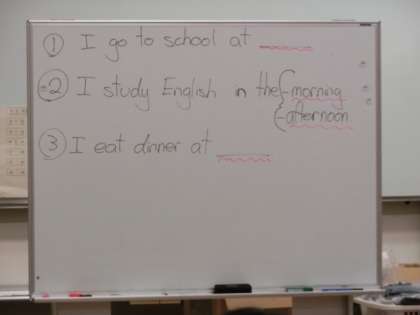 ① I go to school at ____
② I study English in the {-morning
{-afternoon
③ I eat dinner at ____